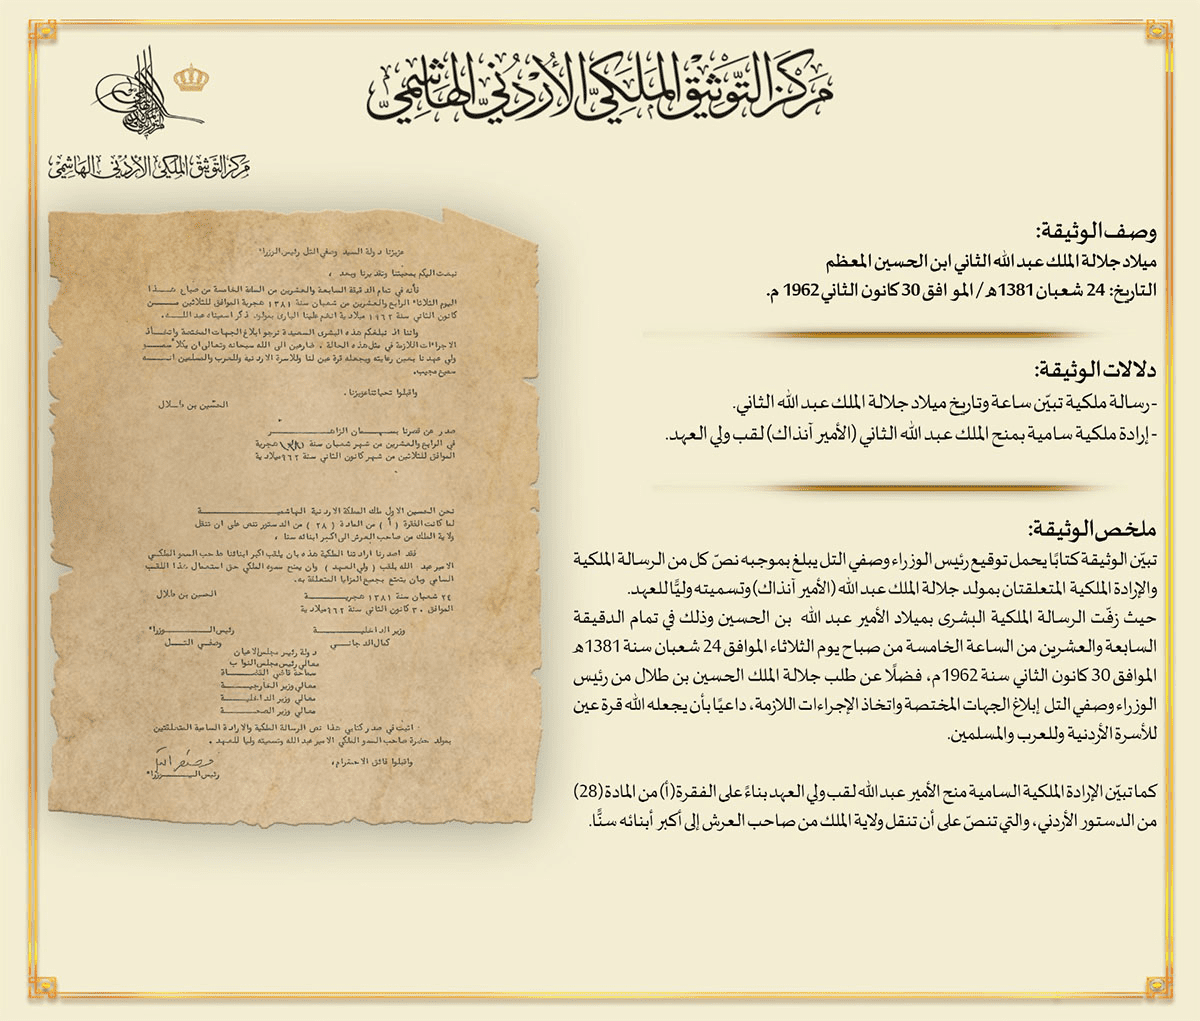 مركز التوثيق الملكي الأردني الهاشمي
مركز التوثيق الملكي الأردني الهاشمي
وصف الوثيقة:
ميلاد جلالة الملك عبد الله الثاني ابن الحسين المعظم
التاريخ: 24 شعبان 1381ھ / الموافق 30 كانون الثاني 1962 م.
دلالات الوثيقة:
-رسالة ملكية تبيّن ساعة وتاريخ ميلاد جلالة الملك عبد الله الثاني.
- إرادة ملكية سامية بمنح الملك عبد الله الثاني (الأمير آنذاك) لقب ولي العهد.
ملخص الوثيقة:
تبيّن الوثيقة كتابًا يحمل توقيع رئيس الوزراء وصفي التل يبلغ بموجبه نصّ كل من الرسالة الملكية
والإرادة الملكية المتعلقتان بمولد جلالة الملك عبد الله (الأمير آنذاك) وتسميته وليًّا للعهد.
حيث زفّت الرسالة الملكية البشرى بميلاد الأمير عبد الله بن الحسين وذلك في تمام الدقيقة
السابعة والعشرين من الساعة الخامسة من صباح يوم الثلاثاء الموافق 24 شعبان سنة 1381ھ
الموافق 30 كانون الثاني سنة 1962م، فضلًا عن طلب جلالة الملك الحسين بن طلال من رئيس
الوزراء وصفي التل إبلاغ الجهات المختصة واتخاذ الإجراءات اللازمة، داعيًا بأن يجعله الله قرة عين
للأسرة الأردنية وللعرب والمسلمين.
كما تبيّن الإرادة الملكية السامية منح الأمير عبد الله لقب ولي العهد بناءً على الفقرة (أ) من المادة (28)
من الدستور الأردني، والتي تنصّ على أن تنقل ولاية الملك من صاحب العرش إلى أكبر أبنائه سنًّا.
عزيزنا دولة السيد وصفي التل رئيس الوزراء
نبعث اليكم بمحبتنا وتقديرنا وبعد ،
فأنه في تمام الدقيقة السابعة والعشرين من السادة الخامسة من صباح هـذا
اليوم الثلاثاء الرابع والعشرين من شعبان سنة ١٣٨١ هجرية الموافق للثلاثين مـن
كانون الثاني سنة ١٩٦٢ ميلادية انعم علينا الباري بمولود ذكر اسميناه عبد اللـه.
واننا اذ نبلغكم هذه البشرى السعيدة نرجو ابلاغ الجهات المختصة واتخـاذ
الاجراءات اللازمة في مثل هذه الحالة ، ضارعين الى الله سبحانه وتعالى ان يكلأ سمـو
ولي عهدنا بعين رعايته ويجعله قرة عين لنا وللاسرة الاردنية وللعرب والمسلمين انـه
سميع مجيب.
واقبلوا تحياتنا عزيزنا .
الحسين بن طلال
صدر عن قصرنا بسمـان الزاهـر
في الرابع والعشرين من شهر شعبان سنة ١٣٨١ هجرية
الموافق للثلاثين من شهر كانون الثاني سنة ٩٦٢ ميلادية
نحن الحسين الاول ملك المملكة الاردنية الهاشمية
لما كانت الفقرة ( أ ) من المادة ( ٢٨ ) من الدستور تنص على ان تنتقل
ولاية الملك من صاحب العرش الى اكبر ابنائه سنا ،
فقد اصدرنا ارادتنا الملكية هذه بان يلقب اكبر ابنائنا صاحب السمو الملكي
الامير عبد الله بلقب ( ولي العهد ) وان يمنح سموه الملكي حق استعمال هذا اللقب
السامي وبان يتمتع بجميع المزايا المتعلقة به .
٢٤ شعبان سنة ١٣٨١ هجريـة الحسين بن طلال
الموافق ٣٠ كانون الثاني سنة ٩٦٢ ميلادية
وزير الداخلية رئيس الـوزراء
كمال الدجاني وصفي التـل
دولة رئيس مجلس الاعيان
معالي رئيس مجلس النواب
سماحة قاضي القضـاة
معالي وزير الخارجيـة
معالي وزير الداخليـة
معالي وزير الصحـة
اثبت في صدر كتابي هذا نص الرسالة الملكية والارادة السامية المتعلقتين
بمولد حضرة صاحب السمو الملكي الامير عبد الله وتسميته وليا للعهد .
واقبلوا فائق الاحترام ،
وصفي التل
رئيس الـوزراء